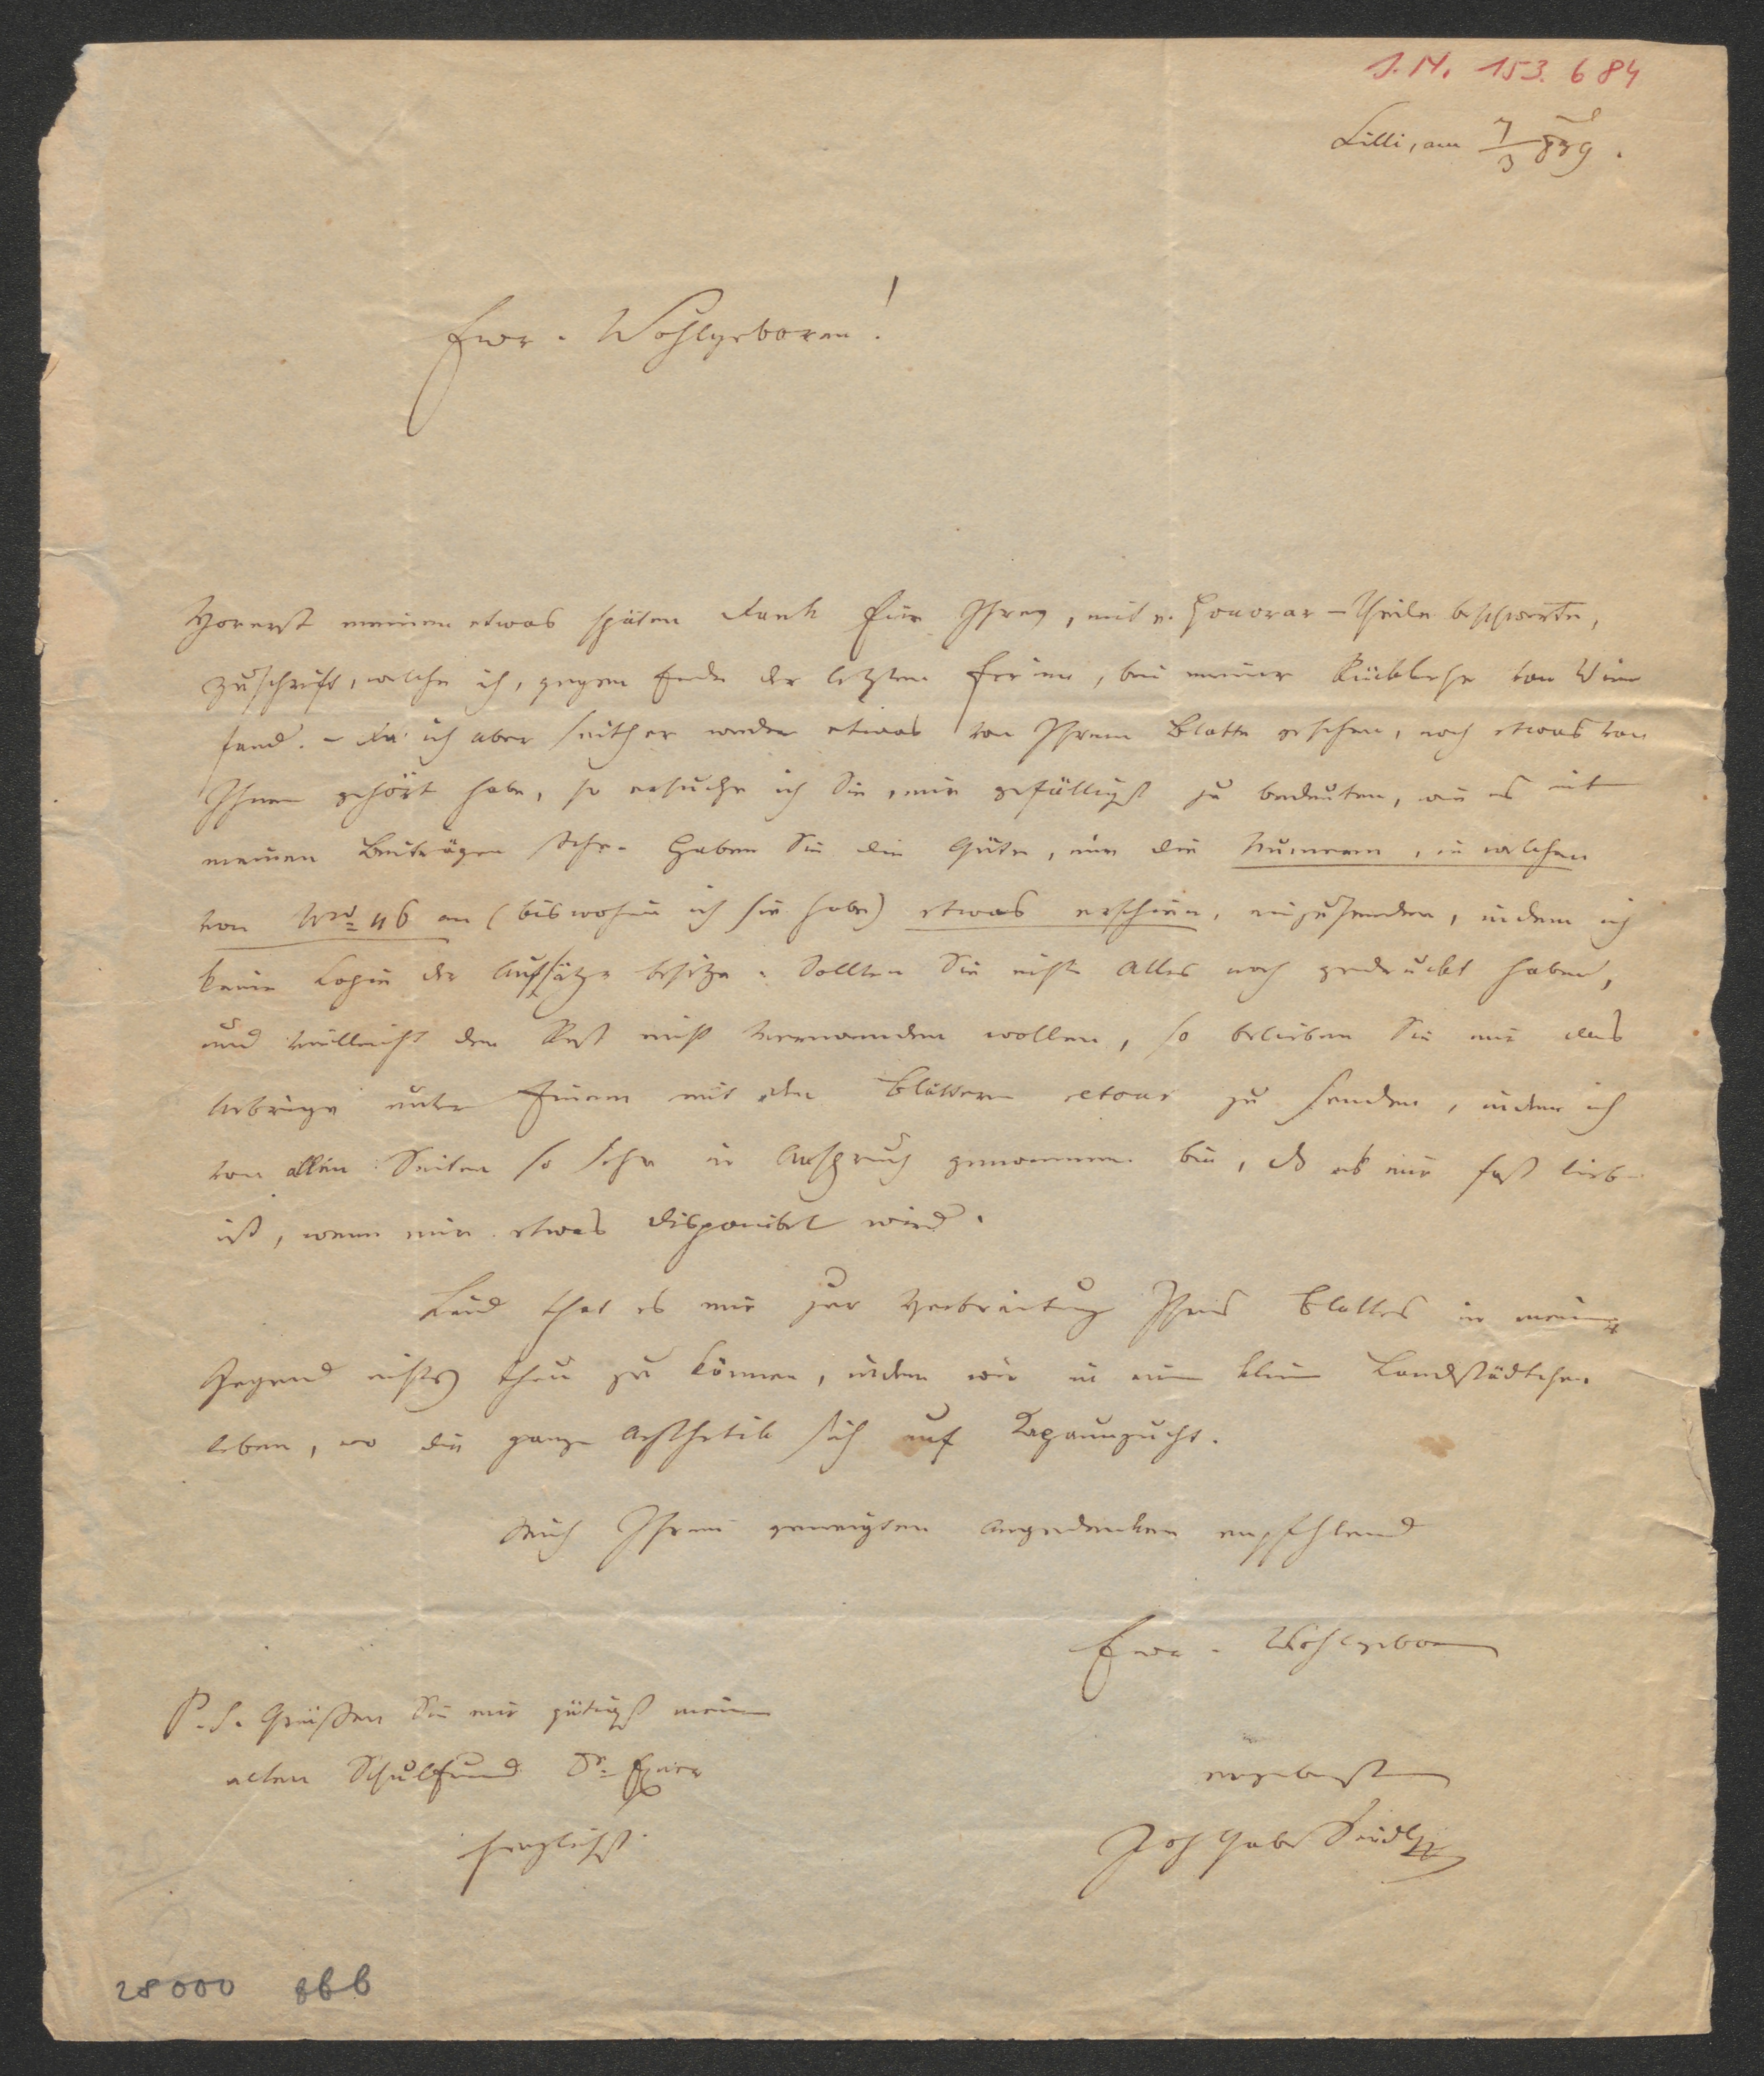 I. N. 153.684
Cilli, am 7/3 839.
Euer. Wohlgeboren!
Vorerst meinen etwas späten Dank für Ihre, mit e. Honorar-Theile beschwerte,
Zuschrift, welche ich, gegen Ende der letzten Ferien, bei meiner Rückkehr von Wien
fand. – Da ich aber seither weder etwas von Ihrem Blatte gesehen, noch etwas von
Ihnen gehört habe, so ersuche ich Sie, mir gefälligst zu bedeuten, wie es mit
meinen Beiträgen stehe. Haben Sie die Güte, mir die Numern, in welchen
von Nro 46 an (bis wohin ich sie habe) etwas erschien, einzusenden, indem ich
keine Copie der Aufsätze besitze. Sollten Sie nicht Alles noch gedruckt haben,
und vielleicht den Rest nicht verwenden wollen, so belieben Sie mir das
Uebrige unter Einem mit den Blättern retour zu senden, indem ich
von allen Seiten so sehr in Anspruch genommen bin, daß es mir fast lieb
ist, wenn mir etwas disponibel wird.
Leid that es mir zur Verbreitung Ihres Blattes in meiner
Gegend nichts thun zu können, indem wir in einem kleinen Landstädtchen
leben, wo die ganze Aesthetik sich auf Kapaunzucht.
Mich Ihrem geneigten Angedenken empfehlend
Euer. Wohlgeboren
P.S. Grüßen Sie mir gütigst meinen
alten Schulfreund Dr. Exner
ergebenster
herzlichst.
Joh Gab Seidl
28000 866